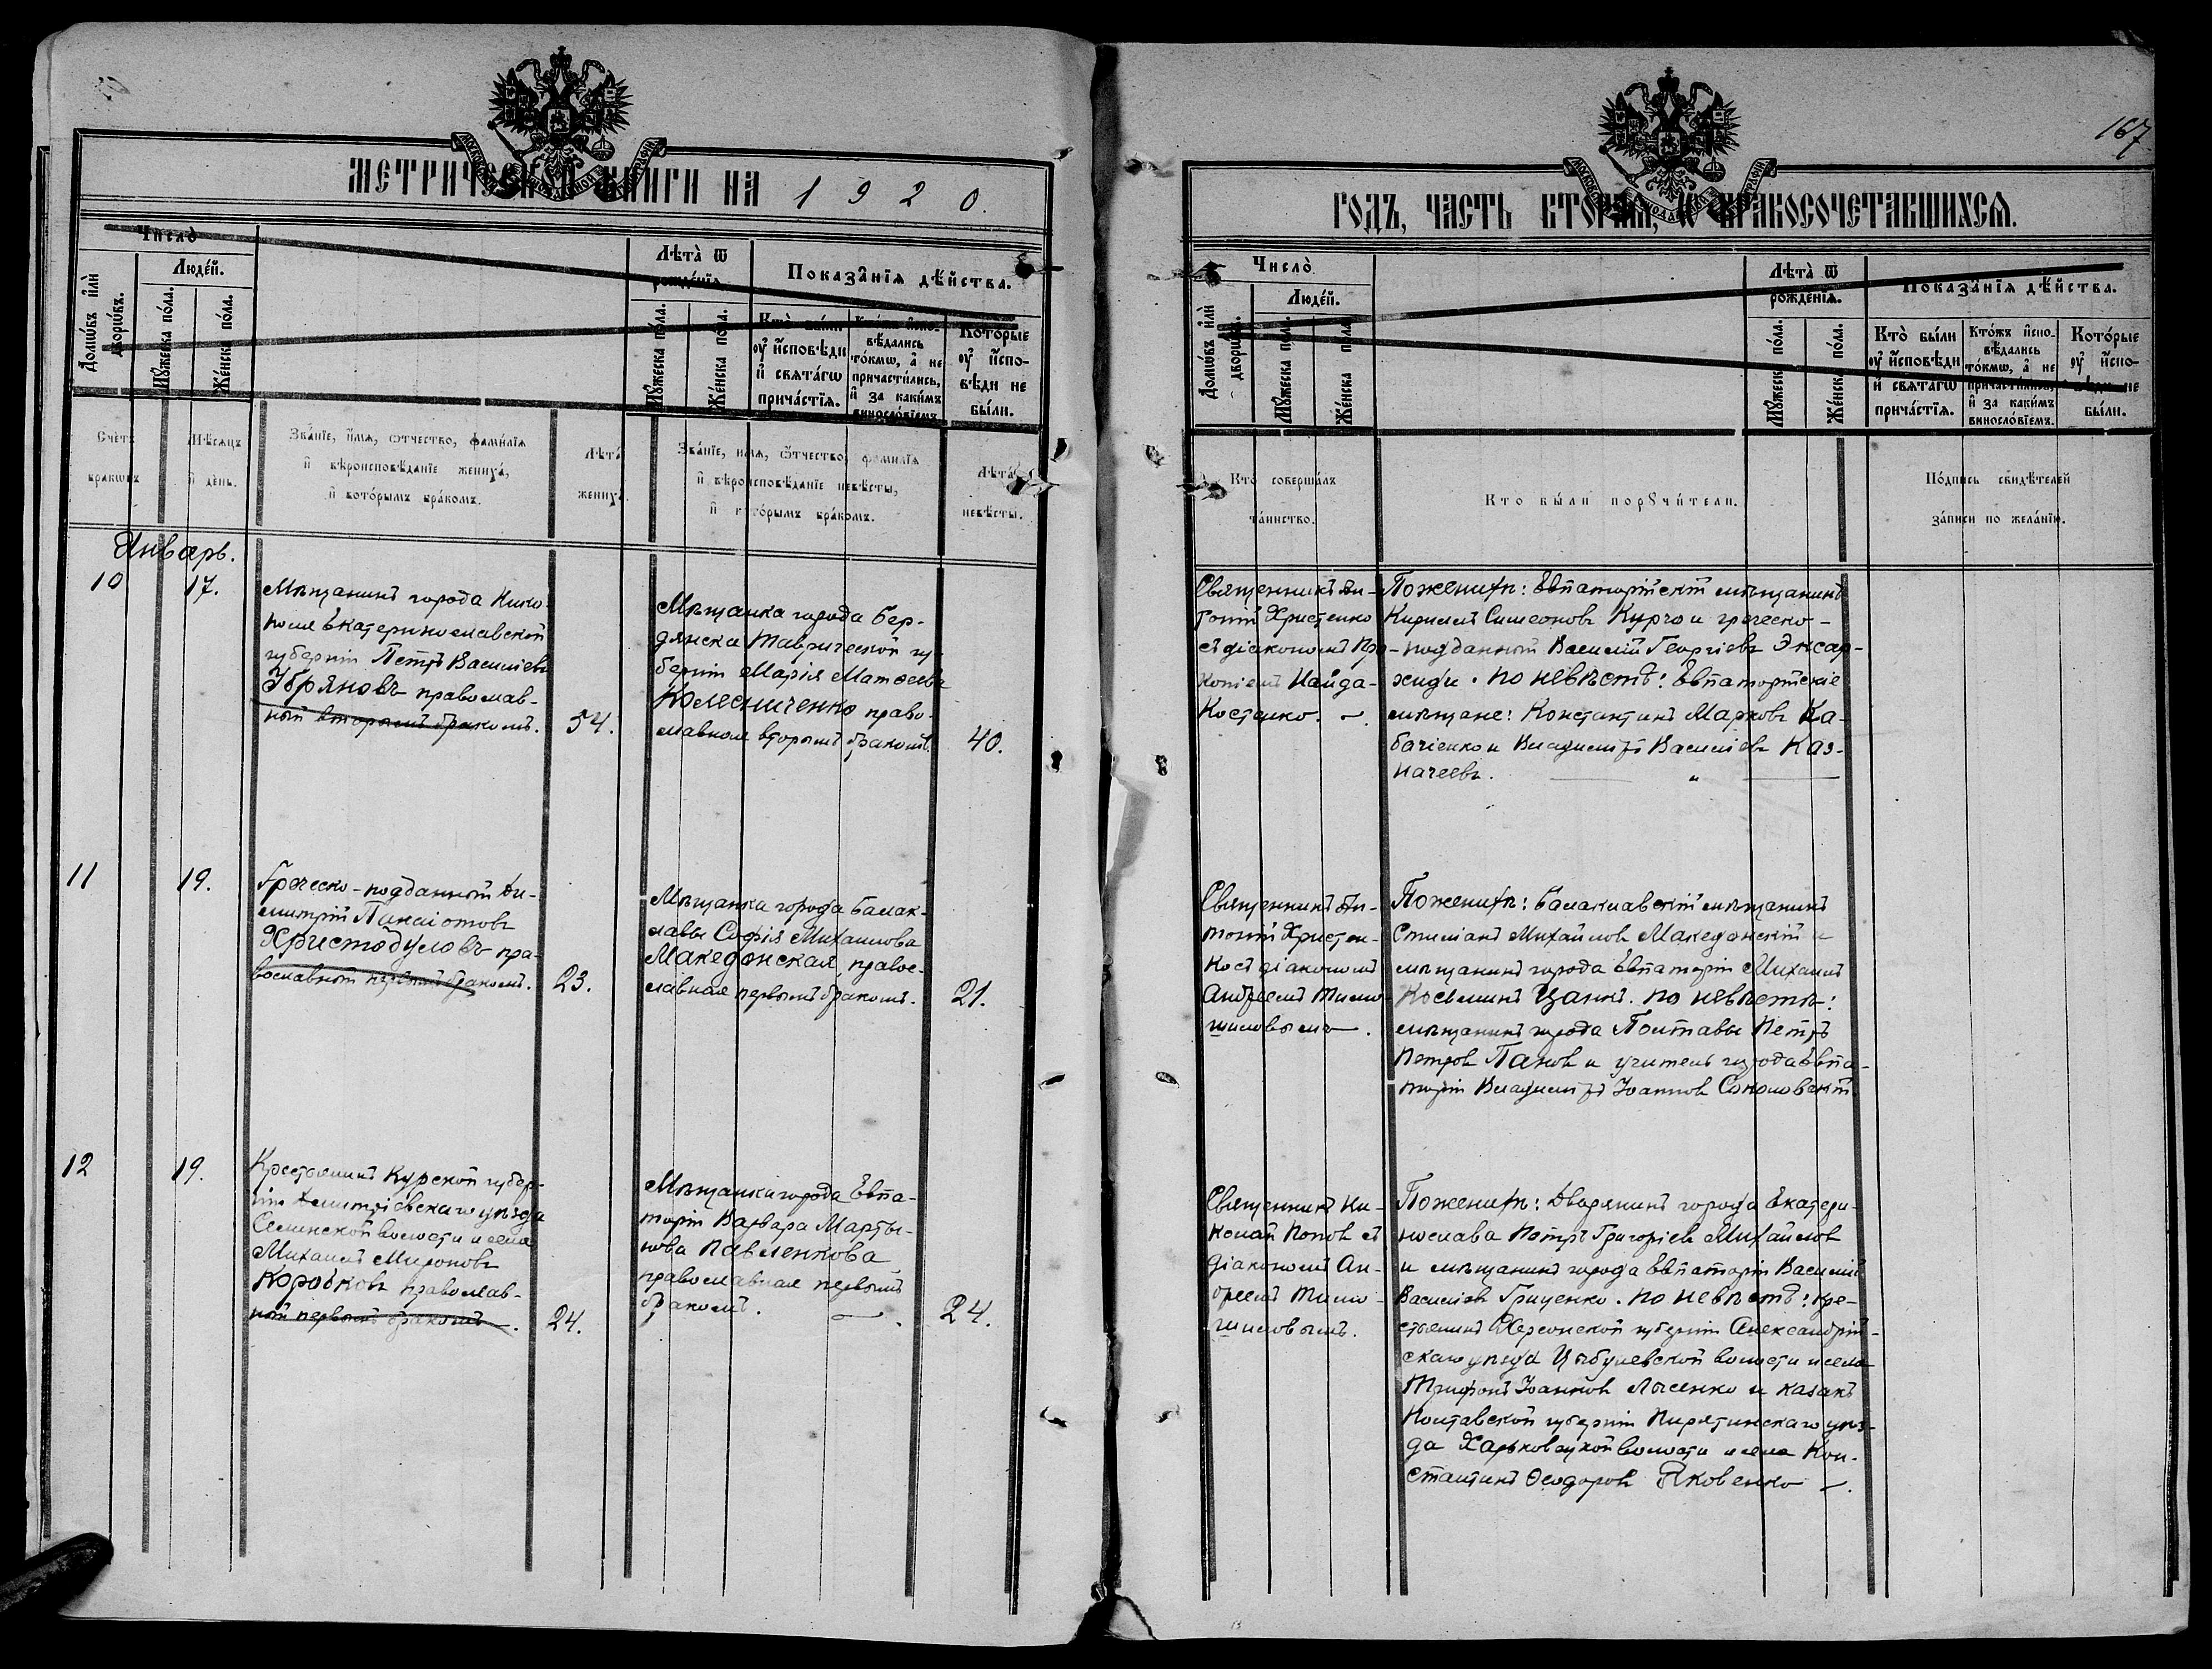 167
МЕТРИЧЕСКОЙ КНИГИ НА 1920.
ГОДЪ, ЧАСТЬ ВТОРАЯ, О БРАКОСОЧЕТАВШИХСЯ.
Число̀
Людéй.
Домѡ́въ и҆лѝ дворѡ́въ.
Мꙋ́жеска по́ла.
Же́нска по́ла.
Лѣта̀ ѿ
рожде́нїѧ.
Мꙋ́жеска по́ла.
Же́нска по́ла.
Показа́нїѧ дѣ́йства.
Кто̀ бы́ли
оу҆ и҆сповѣди
и҆ свѧта́гѡ
прича́стїѧ.
Кто́жъ и҆спо-
вѣдались
то́кмѡ, а҆ не
причасти́лись,
и҆ за каки́мъ
винослóвїемъ.
Кото́рые
оу҆ и҆спо-
вѣди не
бы́ли.
Счетъ
бракѡвъ
Мѣсѧцъ
и҆ день.
Зва́нїе, и҆́мѧ, ѻ҆тчество, фами́лїѧ
и҆ вѣроисповѣданїе жениха̀,
и҆ кото́рымъ бра́комъ.
Лѣта̀
жениха̀.
Зва́нїе, и҆мѧ, ѻ҆тчество, фами́лїѧ
и҆ вѣроисповѣданїе невѣсты,
и҆ кото́рымъ бра́комъ.
Лѣта̀
невѣсты.
Число̀
Людéй.
Домѡ́въ и҆лѝ дворѡ́въ.
Мꙋ́жеска по́ла.
Же́нска по́ла.
Лѣта̀ ѿ
рожде́нїѧ.
Мꙋ́жеска по́ла.
Же́нска по́ла.
Показа́нїѧ дѣ́йства.
Кто̀ бы́ли
оу҆ и҆сповѣди
и҆ свѧта́гѡ
прича́стїѧ.
Кто́жъ и҆спо-
вѣдались
то́кмѡ, а҆ не
причасти́лись,
и҆ за каки́мъ
винослóвїемъ.
Кото́рые
оу҆ и҆спо-
вѣди не
бы́ли.
Кто соверша́лъ
та́инство.
Кто бы́ли порꙋчи́тели.
По́дпись свидѣтелей
за́писи по жела́нїю.
Январь.
10
17.
Мѣщанинъ города Нико-
поля Екатеринославской
губерніи Петръ Васильевъ
православ-
ный вторымъ бракомъ.
54.
Мѣщанка города Бер-
дянска Таврической гу-
берніи Марія Матѳеева
Колесниченко право-
славная вторымъ бракомъ.
40.
Священникъ Ан-
тоній Христенко
съ діакономъ Про-
копіемъ Найда-
Костенко.
По женихѣ: Евпаторійскій мѣщанинъ
Кириллъ Симеоновъ Курчо и греческо-
подданный Василій Георгіевъ Эксар-
жиди. По невѣстѣ: Евпаторійскіе
мѣщане: Константинъ Марковъ Ка-
баченко и Владиміръ Васильевъ Каз-
начеевъ.
11
19.
Греческо-подданный Ди-
митрій Панаіотовъ
Христодуловъ пра-
вославный первымъ бракомъ.
23.
Мѣщанка города Балак-
лавы Софія Михаилова
Македонская, право-
славная первымъ бракомъ.
21.
Священникъ Ан-
тоній Христен-
ко съ діакономъ
Андреемъ Тимо-
шиловымъ.
По женихѣ: Балаклавскій мѣщанинъ
Стиліанъ Михайловъ Македонскій и
мѣщанинъ города Евпаторіи Михаилъ
Косьминъ Цанкъ. По невѣстѣ:
мѣщанинъ города Полтавы Петръ
Петровъ Пановъ и учитель города Евпа-
торіи Владиміръ Іоанновъ Соколовскій.
12
19.
Крестьянинъ Курской губер-
ніи Дмитріевскаго уѣзда
Селинской волости и села
Михаилъ Мироновъ
Коробковъ православ-
ный первымъ бракомъ.
24.
Мѣщанка города Евпа-
торіи Варвара Марты-
нова Павленкова
православная первымъ
бракомъ.
24.
Священникъ Ни-
колай Поповъ съ
діакономъ Ан-
дреемъ Тимо-
шиловымъ.
По женихѣ: Дворянинъ города Екатери-
нослава Петръ Григорьевъ Михайловъ
и мѣщанинъ города Евпаторіи Василій
Васильевъ Гриценко. По невѣстѣ: кре-
стьянинъ Херсонской губерніи Александрій-
скаго уѣзда Цыбулевской волости и села
Трифонъ Іоанновъ Лысенко и казакъ
Полтавской губерніи Пирятинскаго уѣз-
да Харьковецкой волости и села Кон-
стантинъ Ѳеодоровъ Яковенко.